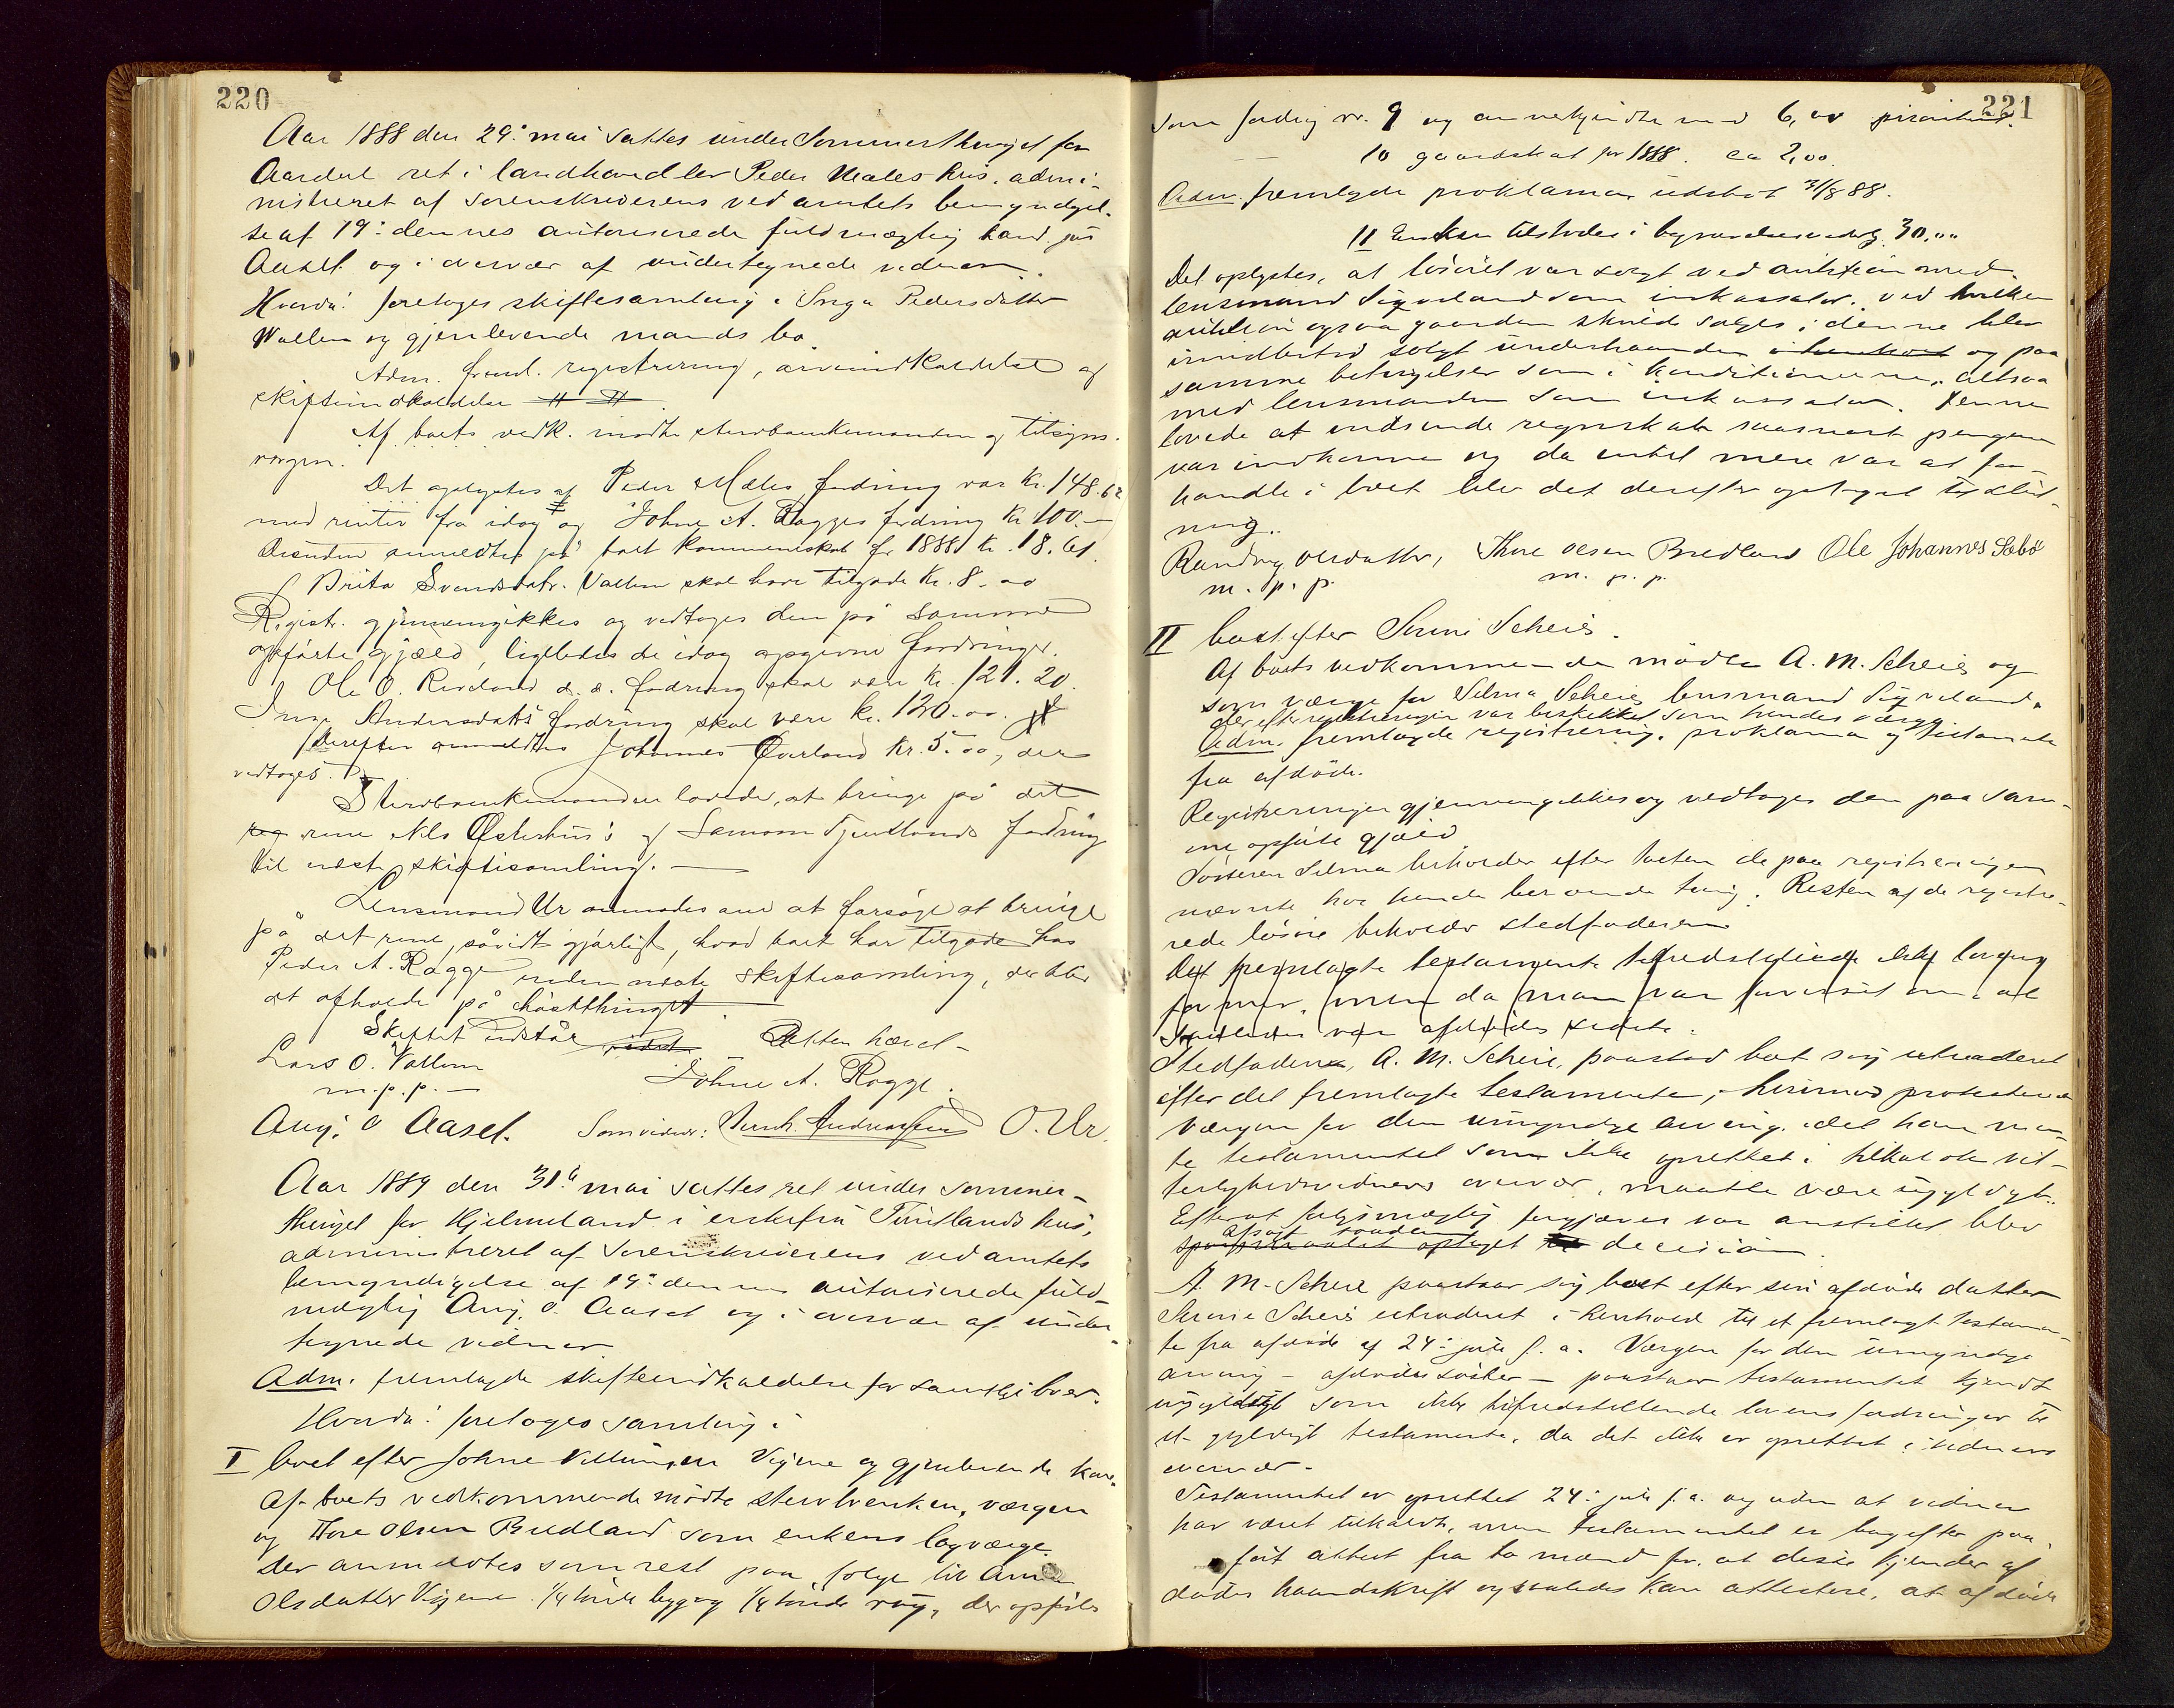 220
Aar 1888 den 29: mai sattes under Sommerthinget for
Aardal ret i landhandler Peder Mæles hus, admi-
nistreret af sorenskriverens ved amtets bemyndigel-
se af 19: dennes autoriserede fuldmægtig cand. jur
Aaset og i overvær af undertegnede vidner.
Hvorda: foretoges skiftesamling i Inga Pedersdatter
Vallem og gjenlevende mands bo.
Adm. freml. registrering, arveindkaldelse og
skifteindkaldelse
Af boets vedk. mødte stervboenkemanden og tilsyns-
vergen.
Det oplystes at Peder Mæles fordring var Kr. 148.62
med renter fra idag og Johne A. Ragges fordring Kr 100.-
Desuden anmeldtes på boet kommuneskat for 1888 Kr. 18.61
Brita Svendsdatr. Vallem skal have tilgode Kr. 8.00
Registr. gjennemgikkes og vedtoges den på samme
opførte gjæld, ligeledes de idag opgivne fordringer.
Ole O. Riveland s. s. fordring skal være Kr. 121.20
Inga Andersdatts fordring skal være kr. 120.00.
Derefter anmeldtes Johannes Øverland Kr. 5.00, der
vedtoges.
Stervboenkemanden lovede, at bringe på det
rene Nils Østerhus's og Samson Tjentlands fordring
til næste skiftesamling. —
Lensmand Ur anmodes om at forsøge at bringe
på det rene, såvidt gjørligt, hvad boet har tilgode hos
Peder A. Ragge inden næste skiftesamling, der blir
at afholde på høstthinget.
Skiftet udstår Retten hævet -
Lars O. Vallem
m.p.p. — Johne A. Ragge.
Aug. O Aaset. Som vidner: Andreassen O. Ur.
Aar 1889 den 31: mai sattes ret under sommer-
thinget for Hjelmeland i enkefru Tuntlands hus,
administreret af sorenskriverens ved amtets
bemyndigelse af 19: dennes autoriserede fuld-
mægtig Aug. O. Aaset og i overvær af under-
tegnede vidner.
Adm. fremlagde skifteindkaldelse for samtlige boer.
Hvorda: foretoges samling i
I boet efter Johne Villumsen Vigene og gjenlevende kone.
Af boets vedkommende mødte stervboenken, værgen
og Thore Olsen Bredland som enkens lagværge.
Der anmeldtes som rest paa folge til Anna
Olsdatter Vigene 1/4 tønde byg og 1/4 tønde rug, der opføres
221
som fordring nr. 9 og anerkjendtes med 6,00 prioritet.
10 gaardskat for 1888. ca 2,00.
Adm. fremlagde proklama udstedt 31/8 88.
11 Enken tilstodes i begravelsesudlæg 30,00
Det oplystes, at løsøret var solgt ved auktion med
lensmand Sigveland som inkassator. Ved hvilken
auktion ogsaa gaarden skulde sælges; denne blev
imidlertid solgt underhaanden og paa
samme betingelser som i konditionerne, altsaa
med lensmanden som inkassator. Denne
lovede at indsende regnskab saasnart pengene
var indkomne og da intet mere var at for-
handle i boet blev det derefter optaget til slut-
ning.
Randveg Olsdatter, Thore Olsen Bredland Ole Johannes Sæbø
m. p. p. m. p. p.
II boet efter Serine Scheie.
Af boets vedkommende mødte A. M. Scheie og
som værge for Selma Scheie lensmand Sigveland,
der efter registreringen var beskikket som hendes værge
Adm. fremlagde registrering, proklama og testamente
fra afdøde.
Registreringen gjennemgikkes og vedtoges den paa sam-
me opførte gjæld
Søsteren Selma beholder efter taxten de paa registreringen
nævnte hos hende beroende ting. Resten af de registre-
rede løsøre beholder stedfaderen
Det fremlagte testamente tilfredsstillede ikke lovens
former, men da man var forvisset om, at
saaledes var afdødes sidste.
Stedfaderen, A. M. Scheie, paastod boet sig extraderet
efter det fremlagte testamente; herimod protesterede
Værgen for den umyndige arving, idet han men-
te testamentet som ikke oprettet i tilkaldte vit-
terlighedsvidners overvær, maatte være ugyldigt.
Efterat forligsmægling forgjæves var anstillet blev
afsagt saadan
spørgsmaalet optaget til decision.
A. M. Scheie paastaar sig boet efter sin afdøde datter
Serine Scheie extraderet i henhold til et fremlagt testamen-
te fra afdøde af 24: juli f. a. Værgen for den umyndige
arving - afdødes søster - paastaar testamentet kjendt
ugyldigt som ikke tilfredsstillende lovens fordringer til
et gyldigt testamente, da det ikke er oprettet i vidners
overvær.
Testamentet er oprettet 24: juli f. a. og uden at vidner
har været tilkaldt, men testamentet er bagefter paa-
ført attest fra to mænd for, at disse kjender af-
dødes haandskrift og saaledes kan attestere, at afdøde